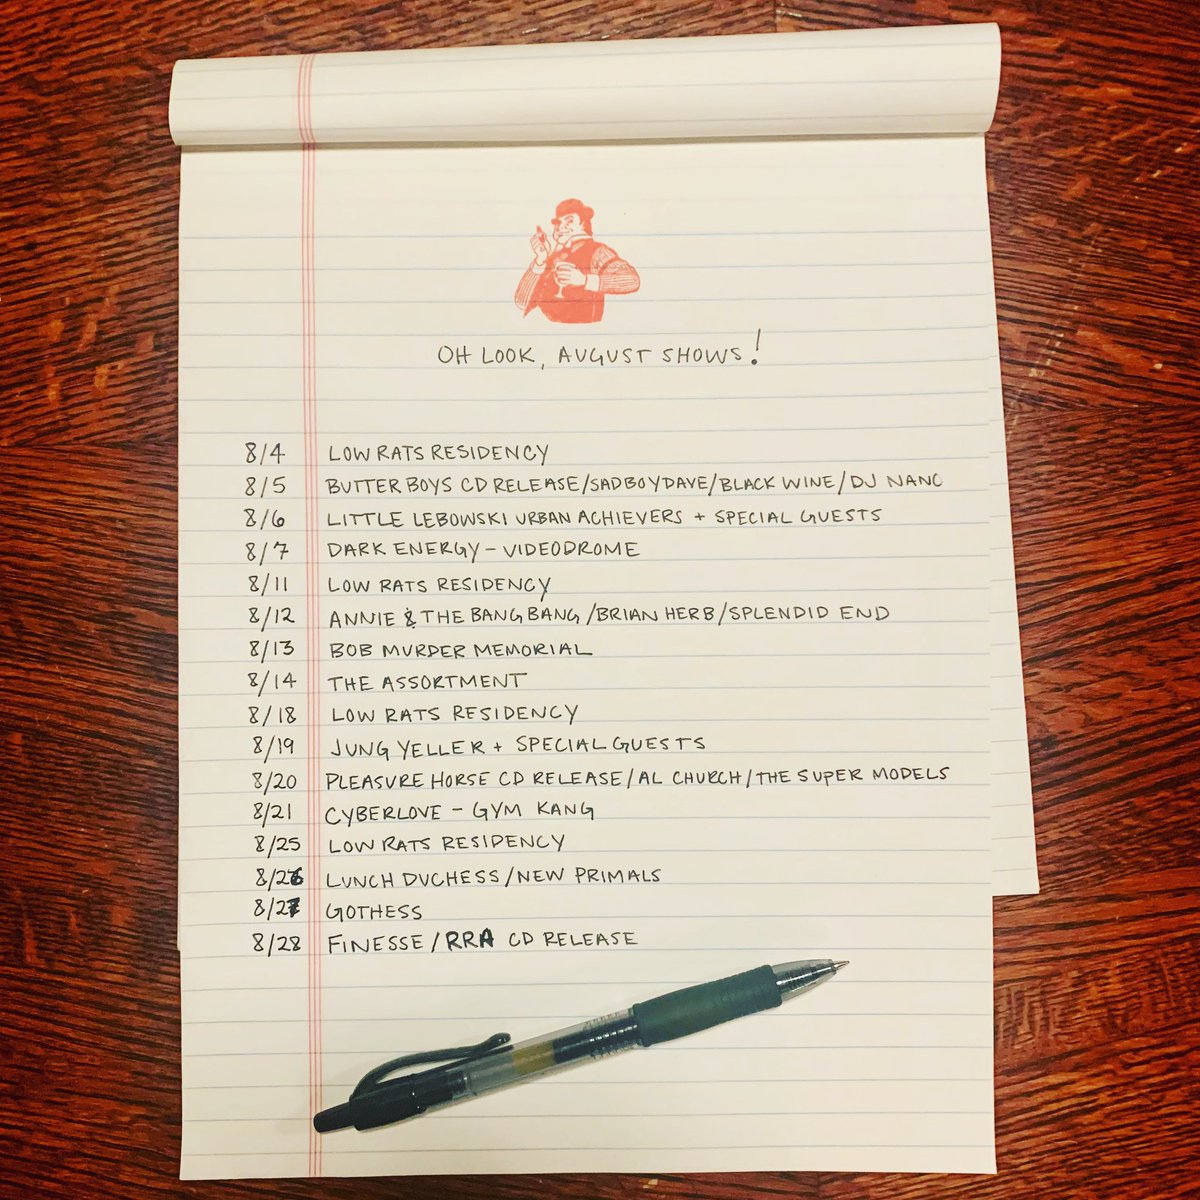 OH LOOK, AUGUST SHOWS!
8/4 LOW RATS RESIDENCY
8/5 BUTTER BOYS CD RELEASE/SADBOYDAVE/BLACK WINE/DJ NANC
8/6 LITTLE LEBOWSKI URBAN ACHIEVERS + SPECIAL GUESTS
8/7 DARK ENERGY - VIDEODROME
8/11 LOW RATS RESIDENCY
8/12 ANNIE & THE BANG BANG/BRIAN HERB/SPLENDID END
8/13 BOB MURDER MEMORIAL
8/14 THE ASSORTMENT
8/18 LOW RATS RESIDENCY
8/19 JUNG YELLER + SPECIAL GUESTS
8/20 PLEASURE HORSE CD RELEASE/AL CHURCH/THE SUPER MODELS
8/21 CYBERLOVE - GYM KANG
8/25 LOW RATS RESIDENCY
8/26 LUNCH DUCHESS/NEW PRIMALS
8/27 GOTHESS
8/28 FINESSE/RRA CD RELEASE